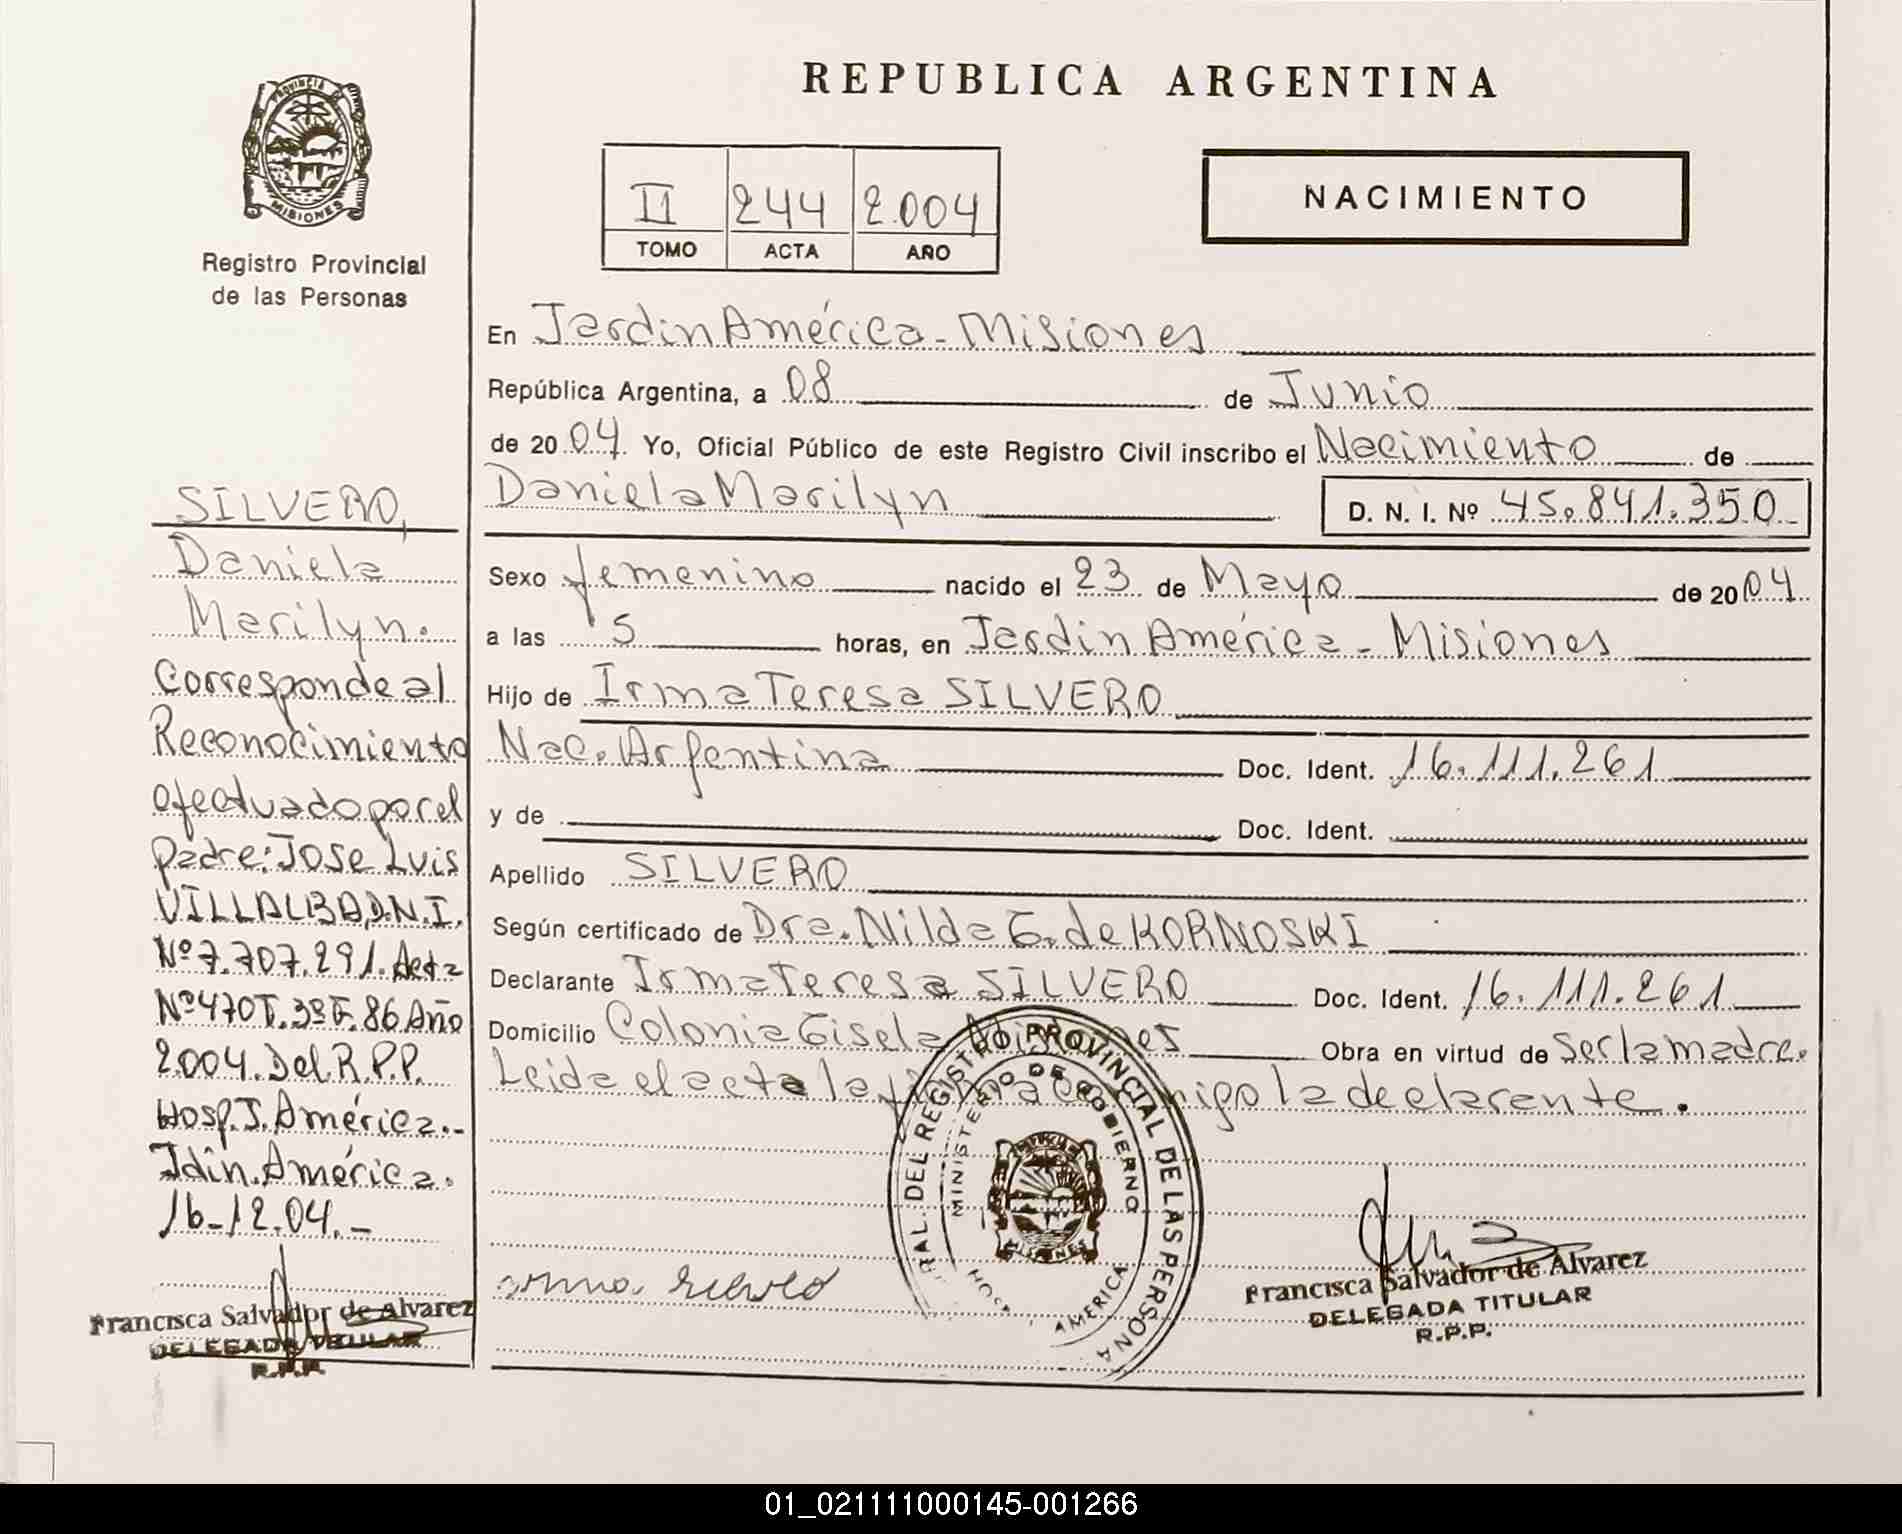 PROVINCIA DE
MISIONES
Registro Provincial
de las Personas
SILVERO,
Daniela
Marilyn.
Corresponde al
Reconocimiento
efectuado por el
padre: Jose Luis
VILLALBA, D.N.I.
Nº 7.707.291. Acta
Nº 470 T. 3º F. 86 Año
2.004. Del R.P.P.
Hosp. J. América.-
Jdín. América.
16-12.04.-
Francisca Salvador de Alvarez
DELEGADA TITULAR
R.P.P.
REPUBLICA ARGENTINA
II 244 2.004
TOMO ACTA AÑO
NACIMIENTO
En Jardin América - Misiones
República Argentina, a 08 de Junio
de 2004. Yo, Oficial Público de este Registro Civil inscribo el Nacimiento de
Daniela Marilyn D. N. I. Nº 45.841.350
Sexo femenino nacido el 23 de Mayo de 2004
a las 5 horas, en Jardin América - Misiones
Hijo de Irma Teresa SILVERO
Nac. Argentina Doc. Ident. 16.111.261
y de Doc. Ident.
Apellido SILVERO
Según certificado de Dra. Nilda G. de KORNOSKI
Declarante Irma Teresa SILVERO Doc. Ident. 16.111.261
Domicilio Colonia Gisela Misiones Obra en virtud de Ser la madre.
Leida el acta la firma conmigo la declarente.
REGISTRO PROVINCIAL DE LAS PERSONA
MINISTERIO DE GOBIERNO
MISIONES
HOSP. AMERICA
Irma Silvero
Francisca Salvador de Alvarez
DELEGADA TITULAR
R.P.P.
01_021111000145-001266